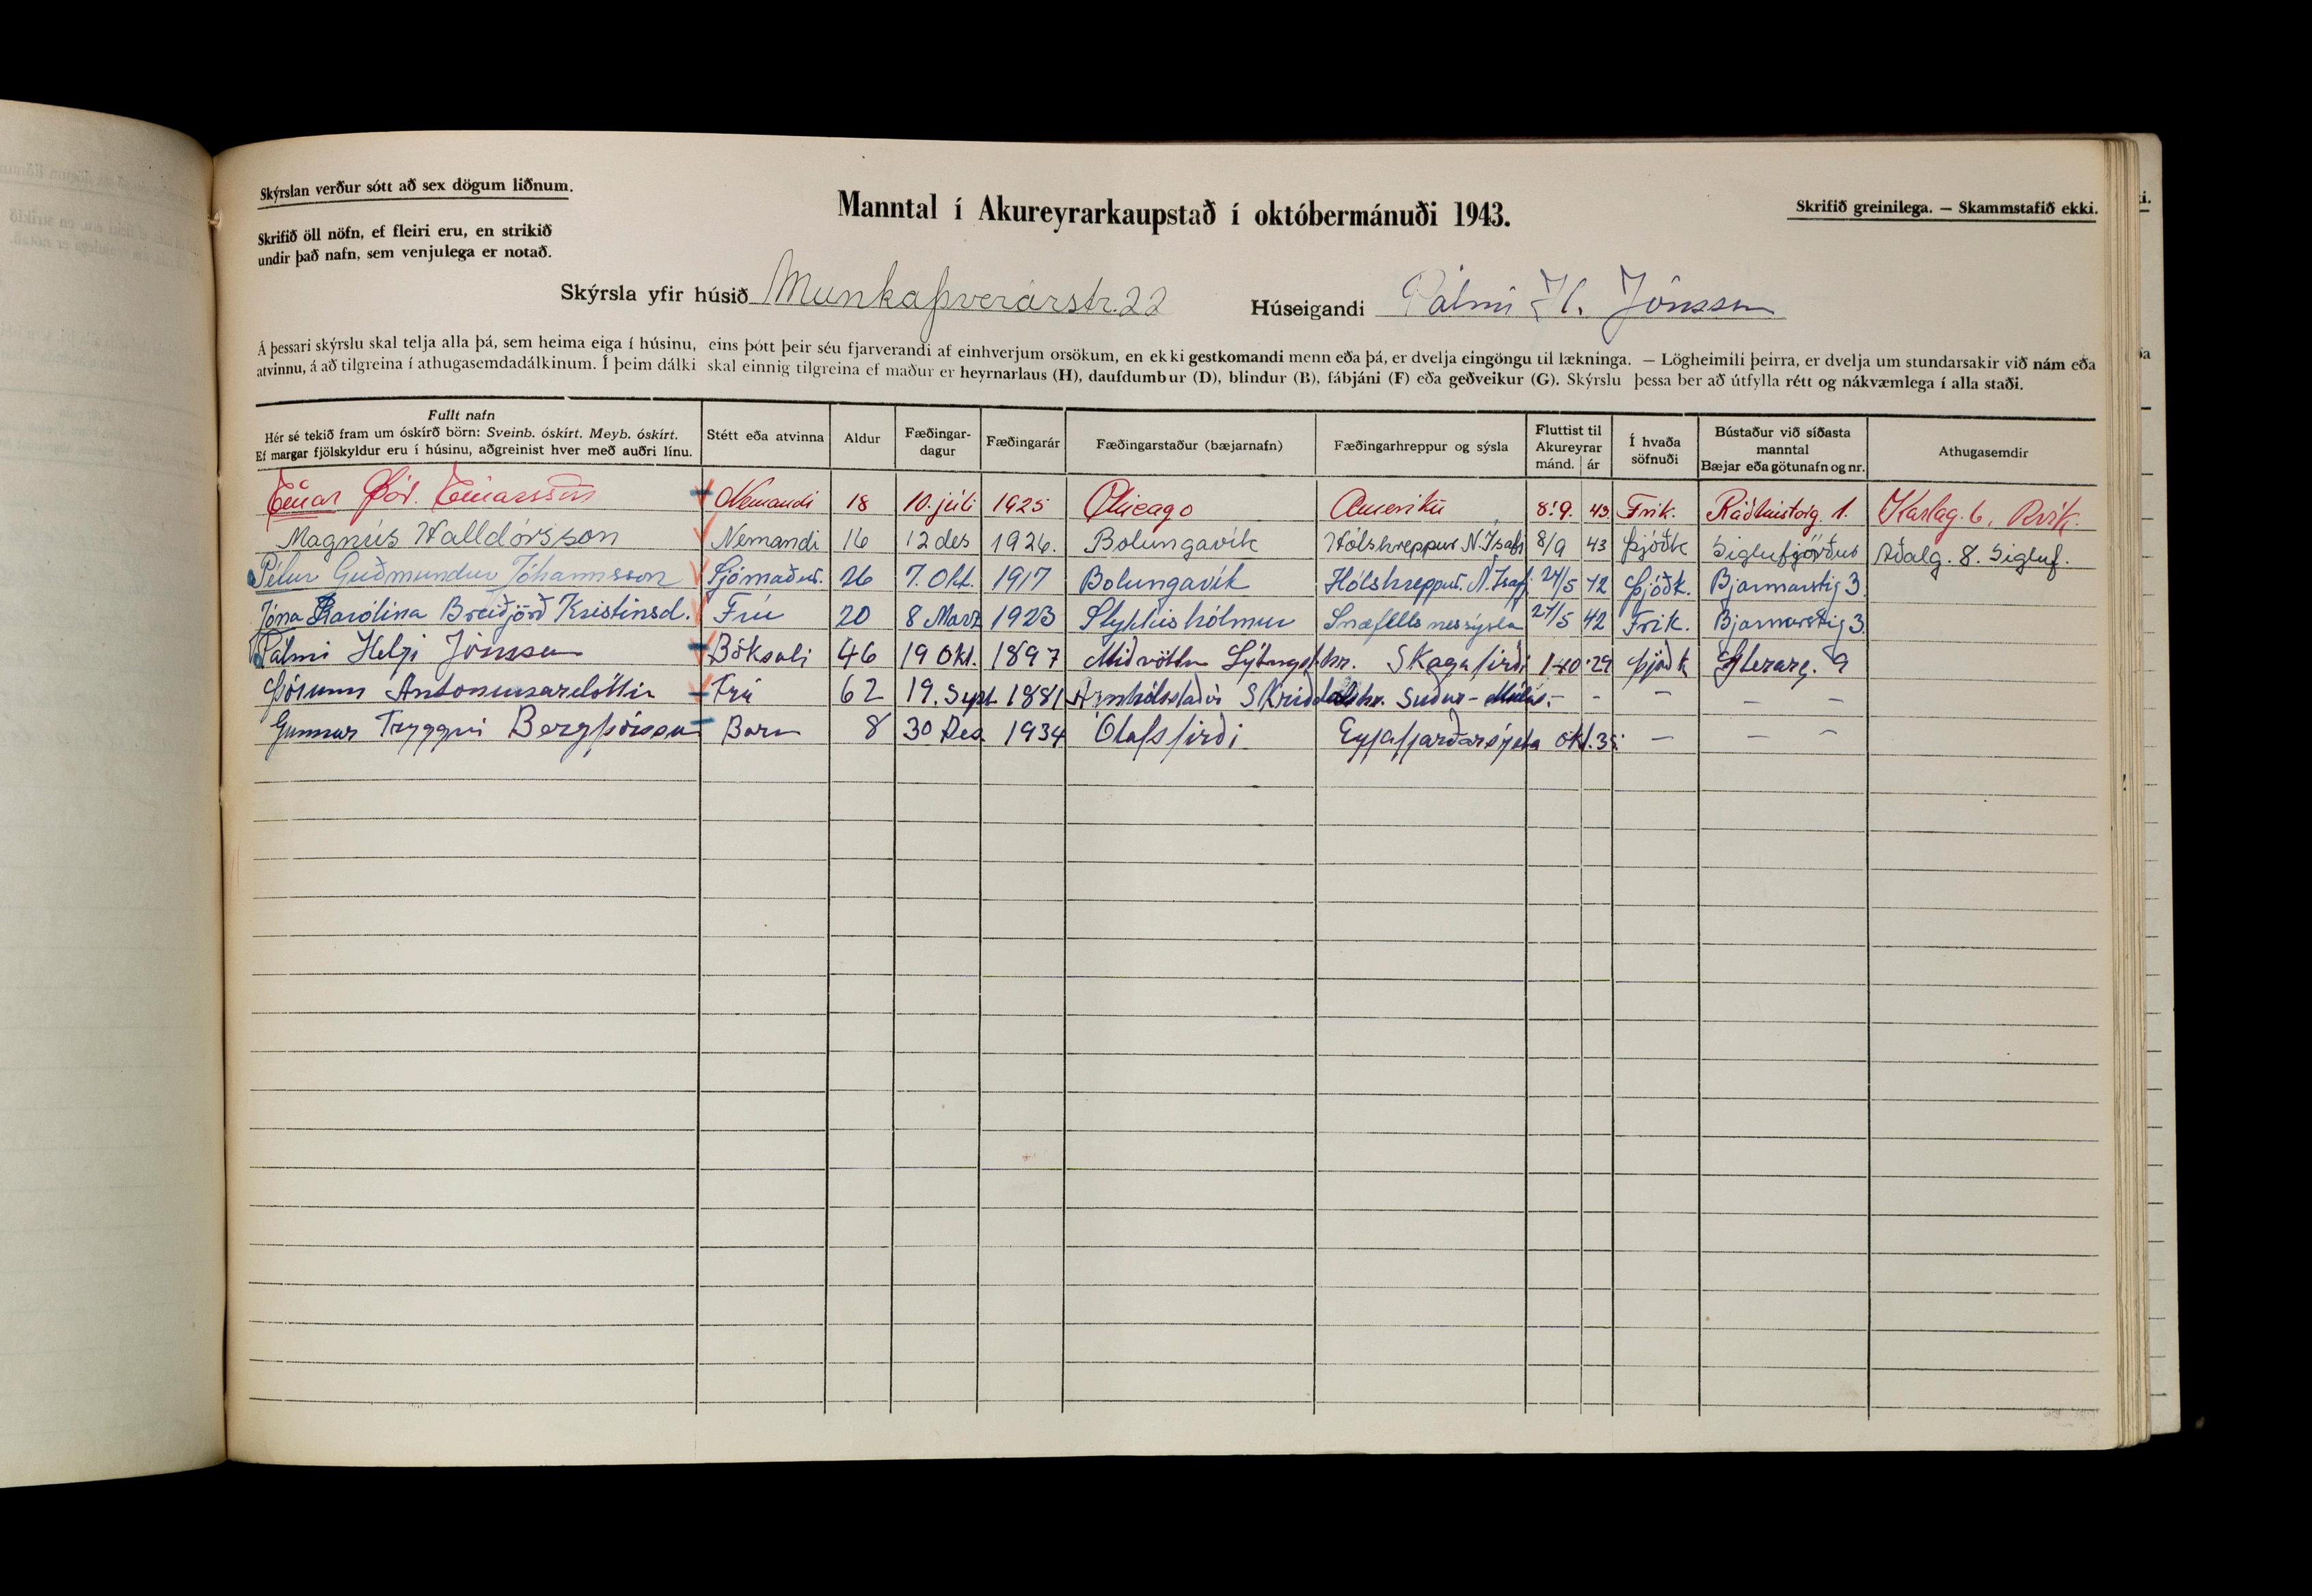 Skýrslan verður sótt að sex dögum liðnum.
Skrifið öll nöfn, ef fleiri eru, en strikið
undir það nafn, sem venjulega er notað.
Manntal í Akureyrarkaupstað í októbermánuði 1943.
Skrifið greinilega. — Skammstafið ekki.
Skýrsla yfir húsið Munkaþverárstr. 22 Húseigandi Pálmi H. Jónsson
Á þessari skýrslu skal telja alla þá, sem heima eiga í húsinu, eins þótt þeir séu fjarverandi af einhverjum orsökum, en ekki gestkomandi menn eða þá, er dvelja eingöngu til lækninga. — Lögheimili þeirra, er dvelja um stundarsakir við nám eða
atvinnu, á að tilgreina í athugasemdadálkinum. Í þeim dálki skal einnig tilgreina ef maður er heyrnarlaus (H), daufdumbur (D), blindur (B), fábjáni (F) eða geðveikur (G). Skýrslu þessa ber að útfylla rétt og nákvæmlega í alla staði.
Fullt nafn
Hér sé tekið fram um óskírð börn: Sveinb. óskírt. Meyb. óskírt.
Ef margar fjölskyldur eru í húsinu, aðgreinist hver með auðri línu.
Stétt eða atvinna
Aldur
Fæðingar-
dagur
Fæðingarár
Fæðingarstaður (bæjarnafn)
Fæðingarhreppur og sýsla
Fluttist til
Akureyrar
mánd. ár
Í hvaða
söfnuði
Bústaður við síðasta
manntal
Bæjar eða götunafn og nr.
Athugasemdir
Einar Þór. Einarsson Nemandi 18 10. júlí 1925 Chicago Ameríku 8/9. 43 Frik. Ráðhústorg. 1. Karlag. 6, Rvík.
Magnús Halldórsson Nemandi 16 12 des 1926. Bolungavík Hólshreppur N. Ísafs 8/9 43 Þjóðk Siglufjörður Aðalg. 8. Sigluf.
Pétur Guðmundur Jóhannsson Sjómaður. 26 7. Okt. 1917 Bolungavík Hólshreppur. N. Ísaf. 24/5 42 Þjóðk. Bjarmarstig 3.
Jóna Karólína Breiðfjörð Kristinsd. Frú 20 8 Marz 1923 Stykkishólmur Snæfellsnessýsla 24/5 42 Frik. Bjarmarstig 3.
Pálmi Helgi Jónsson Bóksali 46 19 Okt. 1897 Miðvöllu Lýtingst.hr. Skagafirði 1-10 29 Þjóðk Glerárg. 9
Þórunn Antoníusardóttir Frú 62 19. Sept 1881 Arnhólsstaðir Skriðdalshr. Suður-Múlas. - - — — —
Gunnar Tryggvi Bergþórsson Barn 8 30 Des 1934 Ólafsfirði Eyjafjarðarsýsla okt. 35. — — —